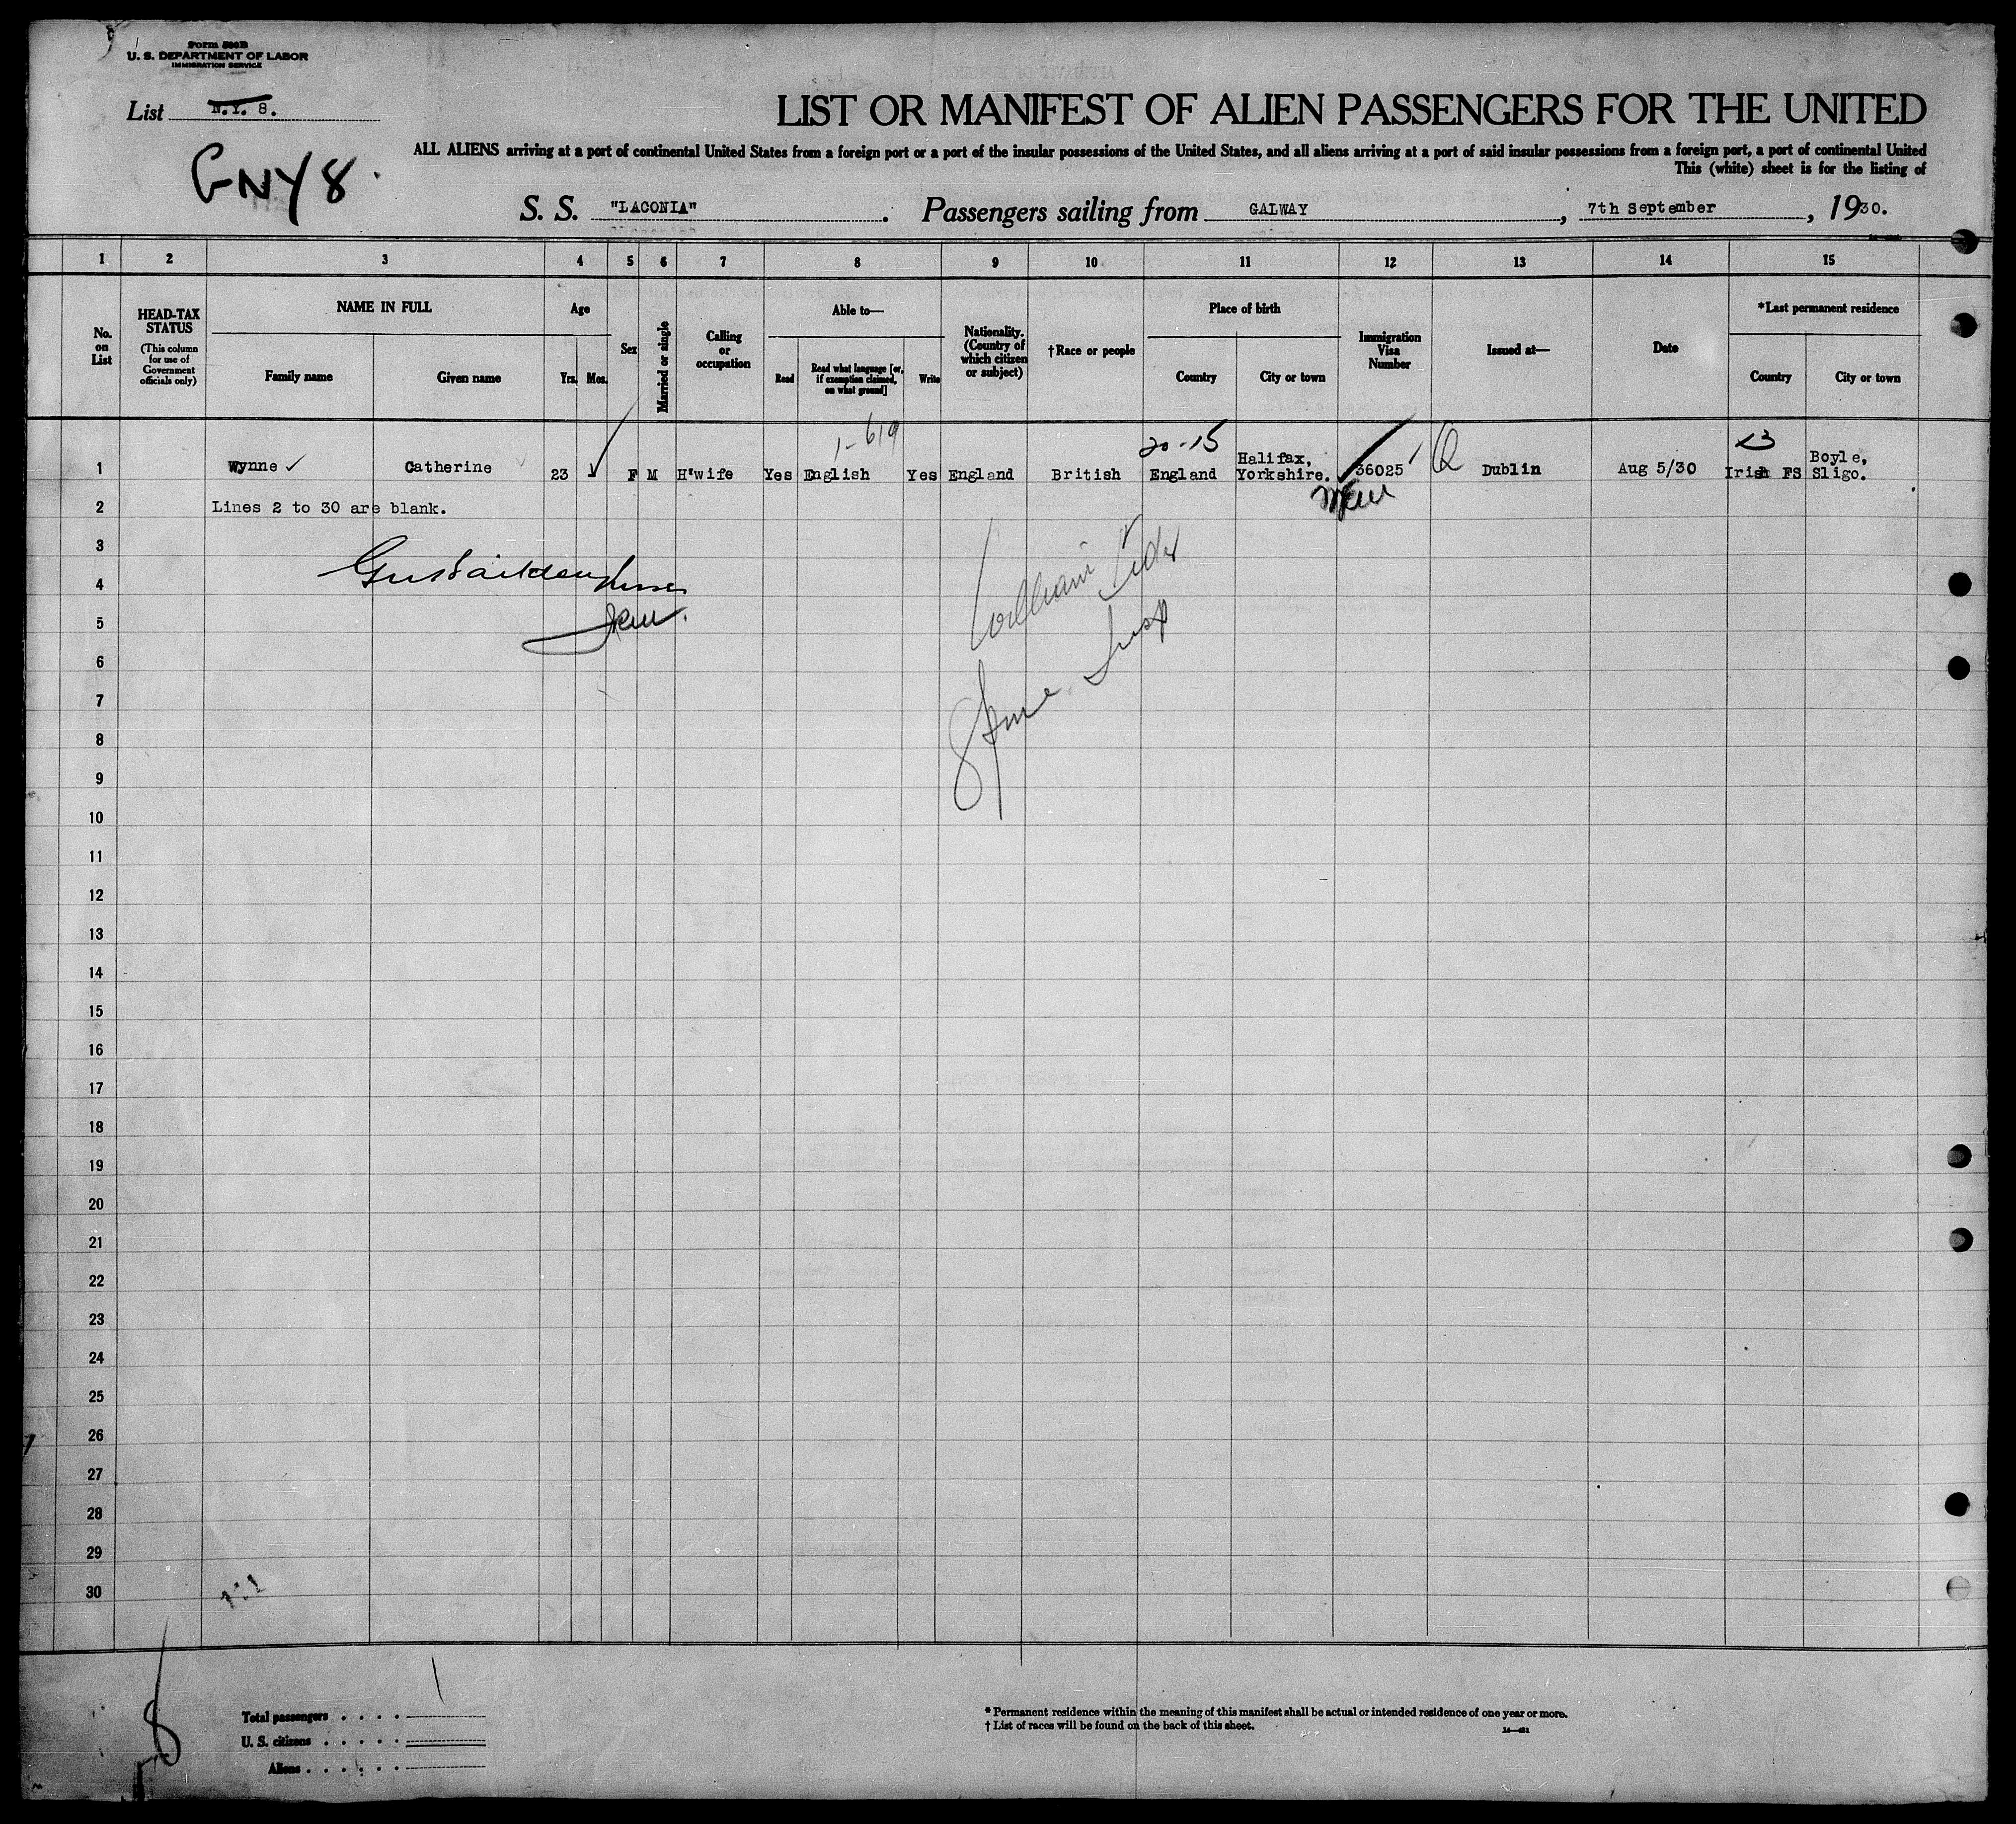 Form 500B
U. S. DEPARTMENT OF LABOR
IMMIGRATION SERVICE
List N.Y. 8.
GNY8.
LIST OR MANIFEST OF ALIEN PASSENGERS FOR THE UNITED
ALL ALIENS arriving at a port of continental United States from a foreign port or a port of the insular possessions of the United States, and all aliens arriving at a port of said insular possessions from a foreign port, a port of continental United
This (white) sheet is for the listing of
S. S. "LACONIA". Passengers sailing from GALWAY, 7th September, 1930.
1 2 3 4 5 6 7 8 9 10 11 12 13 14 15
No. on List
HEAD-TAX STATUS
(This column for use of Government officials only)
NAME IN FULL
Family name
Given name
Age
Yrs.
Mos.
Sex
Married or single
Calling or occupation
Able to—
Read
Read what language [or, if exemption claimed, on what ground]
Write
Nationality. (Country of which citizen or subject)
†Race or people
Place of birth
Country
City or town
Immigration Visa Number
Issued at—
Date
*Last permanent residence
Country
City or town
1-619
20-15
23
1 Wynne Catherine 23 F M H'wife Yes English Yes England British England Halifax, Yorkshire. 36025 Q Dublin Aug 5/30 Irish FS Boyle, Sligo.
2 Lines 2 to 30 are blank.
3
4
5
6
7
8
9
10
11
12
13
14
15
16
17
18
19
20
21
22
23
24
25
26
27
28
29
30
William
Insp
8
Total passengers . . . . 1
U. S. citizens . . . . .
Aliens . . . . . .
* Permanent residence within the meaning of this manifest shall be actual or intended residence of one year or more.
† List of races will be found on the back of this sheet.